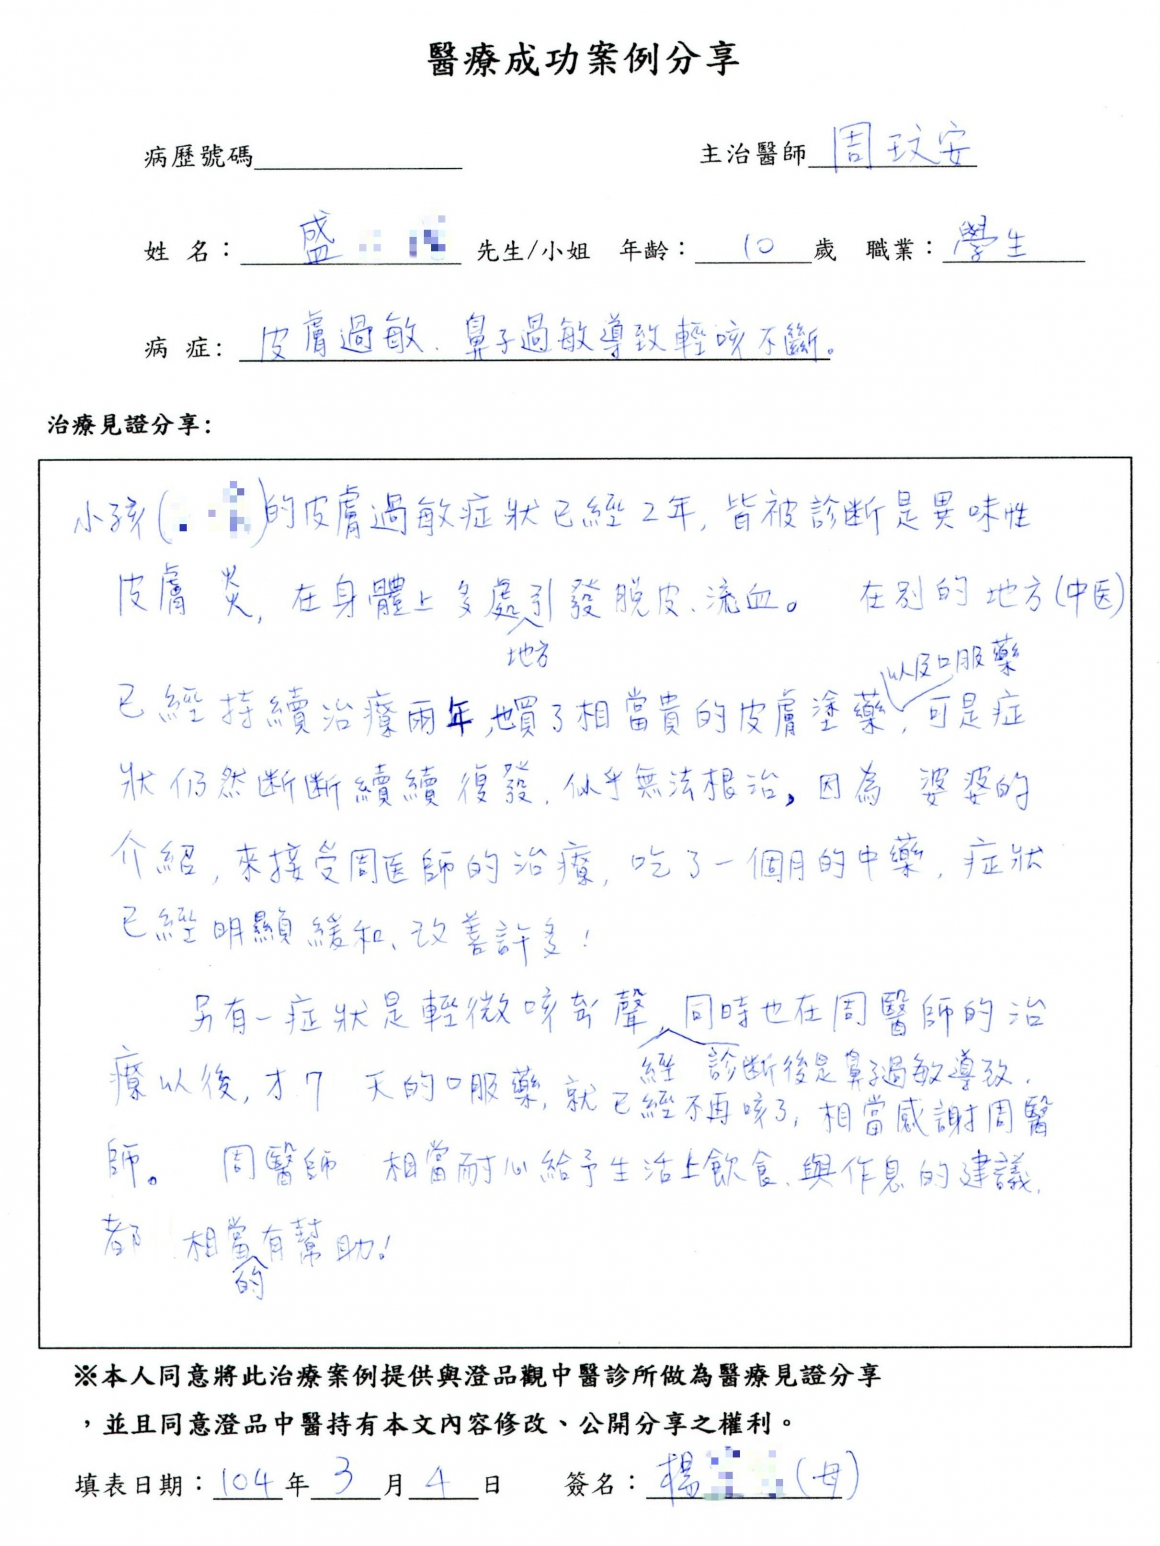 醫療成功案例分享
病歷號碼 主治醫師 周玟安
姓 名： 盛 先生/小姐 年齡： 10 歲 職業： 學生
病 症: 皮膚過敏、鼻子過敏導致輕咳不斷。
治療見證分享:
小孩( )的皮膚過敏症狀已經2年,皆被診斷是異味性
皮膚 炎, 在身體上多處引發脫皮、流血。 在別的地方(中医)
地方
以及口服藥
已經持續治療兩年,也買了相當貴的皮膚塗藥,可是症
狀仍然断断續續復發,似乎無法根治。因為 婆婆的
介紹,來接受周医師的治療,吃了一個月的中藥,症狀
已經明顯緩和、改善許多!
另有一症狀是輕微咳嗽聲 同時也在周醫師的治
經 診断後是鼻子過敏導致,
療以後,才7 天的口服藥,就已經不再咳了,相當感謝周醫
師。 周醫師 相當耐心給予生活上飲食、與作息的建議,
都 相當有幫助!
的
※本人同意將此治療案例提供與澄品觀中醫診所做為醫療見證分享
，並且同意澄品中醫持有本文內容修改、公開分享之權利。
填表日期：104年3月4日 簽名：楊 (母)